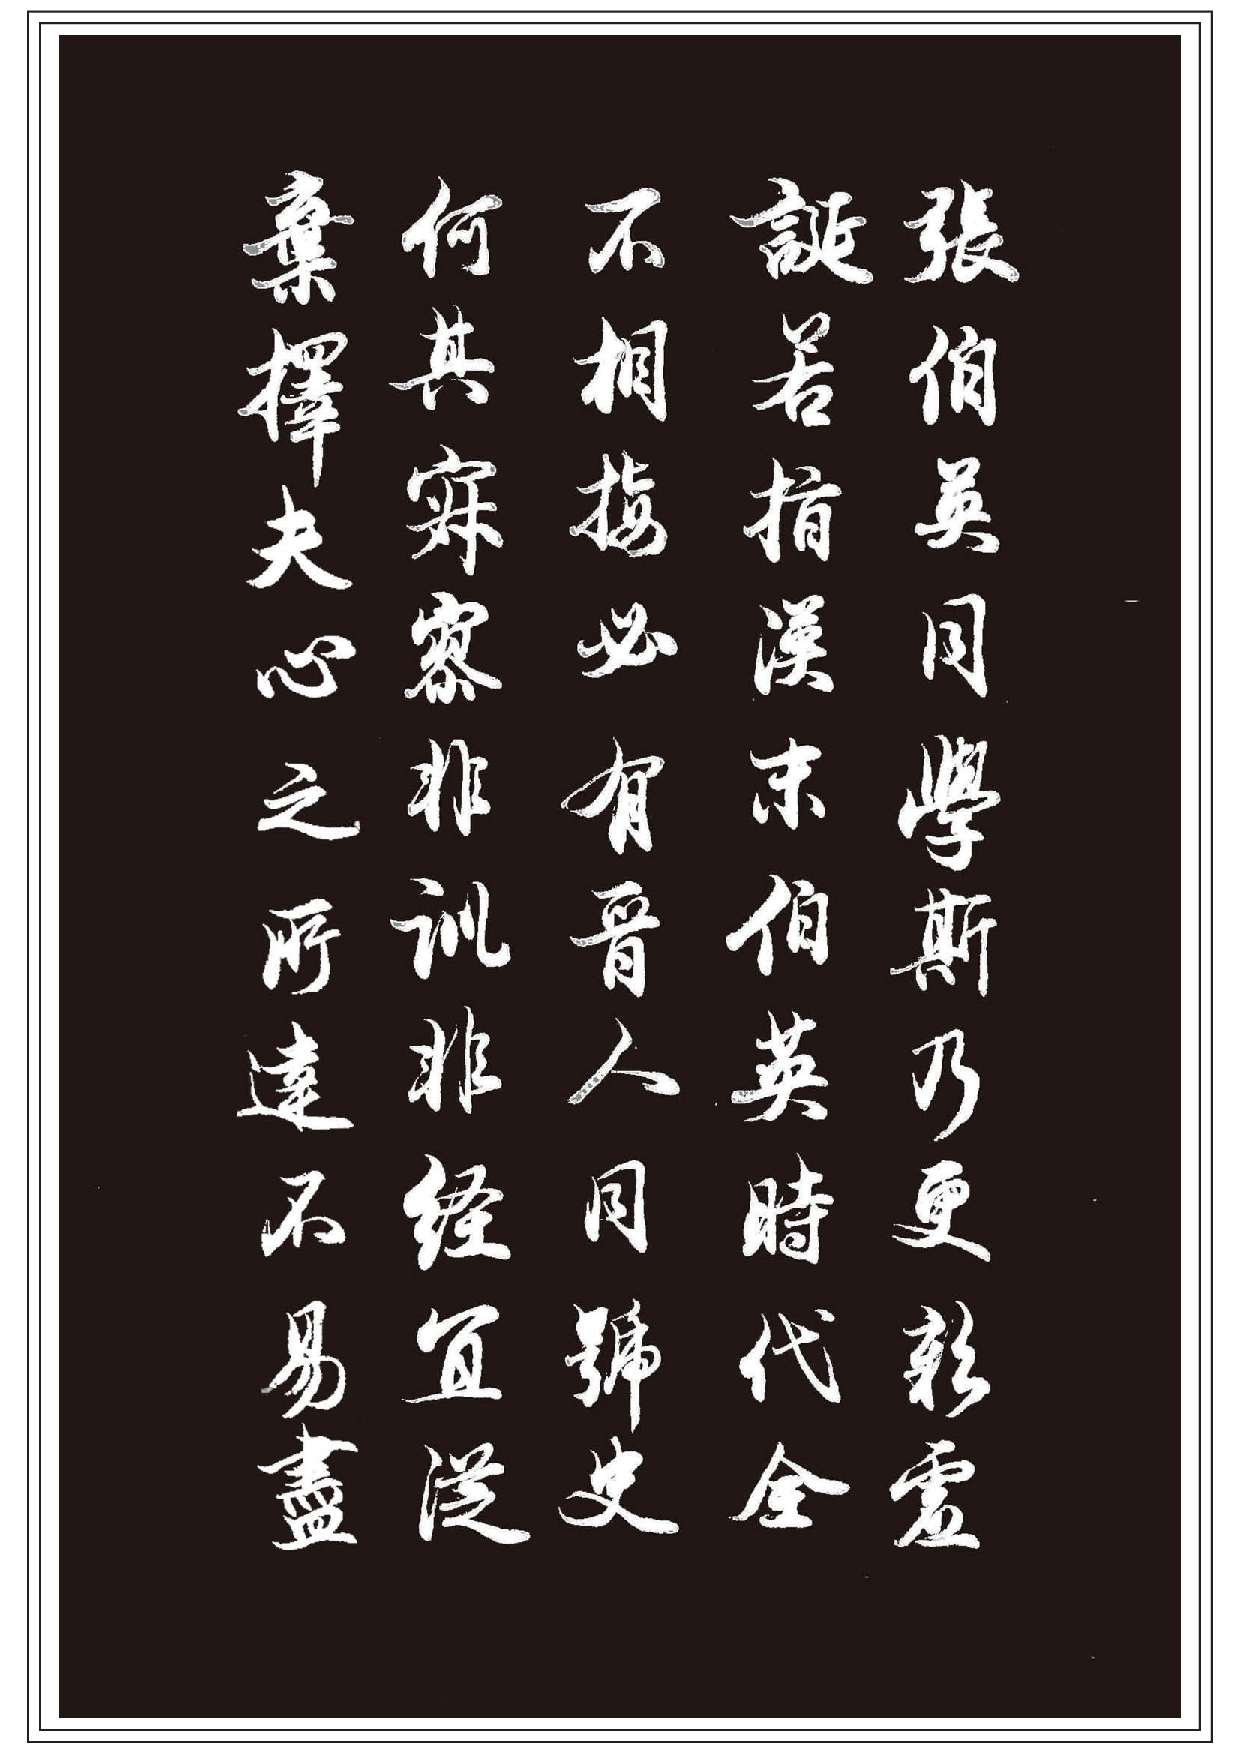 張伯英同學斯乃更彰虛
誕若指漢末伯英時代全
不相接必有晉人同號史
何其寂寥非訓非經宜從
棄擇夫心之所達不易盡